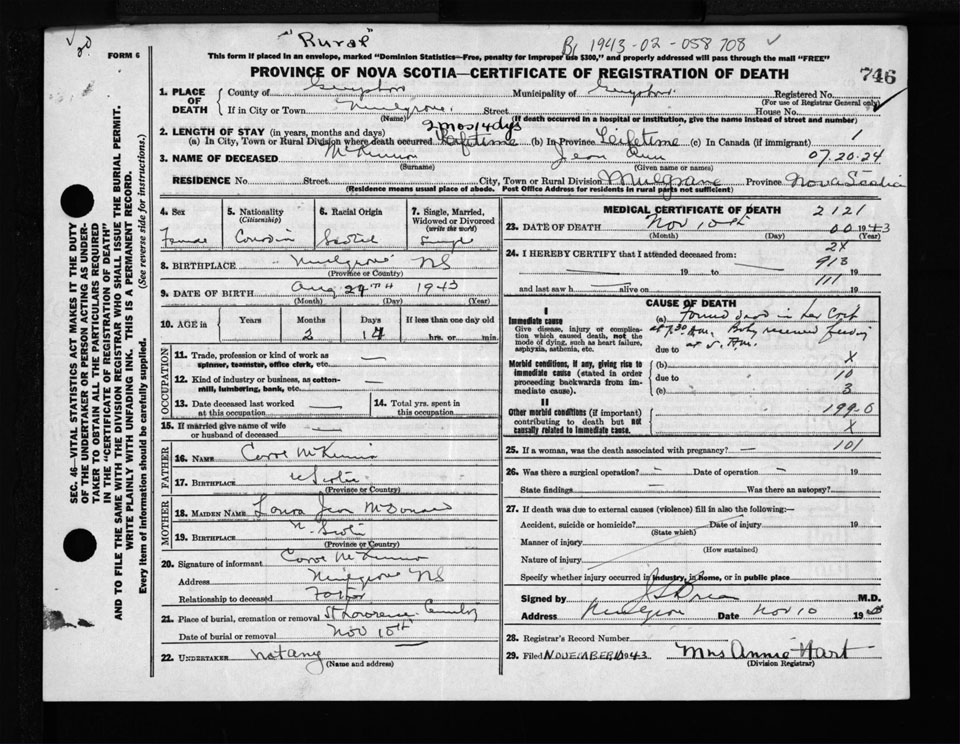 "Rural"
1943-02-058708
FORM 6
This form if placed in an envelope, marked "Dominion Statistics—Free, penalty for improper use $300," and properly addressed will pass through the mail "FREE"
PROVINCE OF NOVA SCOTIA—CERTIFICATE OF REGISTRATION OF DEATH
746
1. PLACE OF DEATH
County of Municipality of Registered No.
(For use of Registrar General only)
If in City or Town Mulgrave Street House No.
(Name) (If death occurred in a hospital or institution, give the name instead of street and number)
2. LENGTH OF STAY (in years, months and days) 2 mos 14 dys
(a) In City, Town or Rural Division where death occurred Lifetime (b) In Province Lifetime (c) In Canada (if immigrant) 1
3. NAME OF DECEASED McKinnon Jean Ann 07.20.24
(Surname) (Given name or names)
RESIDENCE No. Street City, Town or Rural Division Mulgrave Province Nova Scotia
(Residence means usual place of abode. Post Office Address for residents in rural parts not sufficient)
4. Sex 5. Nationality (Citizenship) 6. Racial Origin 7. Single, Married, Widowed or Divorced (write the word)
Female Single
8. BIRTHPLACE Mulgrave NS
(Province or Country)
9. DATE OF BIRTH Aug 27TH 1943
(Month) (Day) (Year)
10. AGE in Years Months Days If less than one day old
2 14 hrs. or min.
OCCUPATION
11. Trade, profession or kind of work as spinner, teamster, office clerk, etc. —
12. Kind of industry or business, as cotton-mill, lumbering, bank, etc. —
13. Date deceased last worked at this occupation — 14. Total yrs. spent in this occupation
15. If married give name of wife or husband of deceased —
FATHER
16. NAME McKinnon
17. BIRTHPLACE
(Province or Country)
MOTHER
18. MAIDEN NAME Jean McDonald
19. BIRTHPLACE N. Scotia
(Province or Country)
20. Signature of informant McKinnon
Address Mulgrave NS
Relationship to deceased Father
21. Place of burial, cremation or removal St Lawrence
Date of burial or removal Nov 10TH
22. UNDERTAKER not any
(Name and address)
MEDICAL CERTIFICATE OF DEATH 2121
23. DATE OF DEATH Nov 10th 1943
(Month) (Day) (Year)
00
24. I HEREBY CERTIFY that I attended deceased from:
2X
19 to 913 19
111
and last saw h alive on 19
CAUSE OF DEATH
I
Immediate cause
Give disease, injury or complication which caused death, not the mode of dying, such as heart failure, asphyxia, asthenia, etc.
(a) Found dead in her Cot
at 7.30 A.M. Baby received feeding
due to at 5. A.M.
Morbid conditions, if any, giving rise to immediate cause (stated in order proceeding backwards from immediate cause).
(b) X
due to 10
(c) 3
II
Other morbid conditions (if important) contributing to death but not causally related to immediate cause.
199-0
X
25. If a woman, was the death associated with pregnancy? — 101
26. Was there a surgical operation? — Date of operation — 19
State findings Was there an autopsy?
27. If death was due to external causes (violence) fill in also the following:—
Accident, suicide or homicide? Date of injury 19
(State which)
Manner of injury
(How sustained)
Nature of injury
Specify whether injury occurred in industry, in home, or in public place
Signed by M.D.
Address Date Nov 10 19
28. Registrar's Record Number
29. Filed NOVEMBER 10 1943 Mrs Annie Hart
(Division Registrar)
SEC. 46—VITAL STATISTICS ACT MAKES IT THE DUTY
OF THE UNDERTAKER OR PERSON ACTING AS UNDERTAKER
TO OBTAIN ALL THE PARTICULARS REQUIRED
IN THE "CERTIFICATE OF REGISTRATION OF DEATH"
AND TO FILE THE SAME WITH THE DIVISION REGISTRAR WHO SHALL ISSUE THE BURIAL PERMIT.
WRITE PLAINLY WITH UNFADING INK. THIS IS A PERMANENT RECORD.
Every item of information should be carefully supplied. (See reverse side for instructions.)